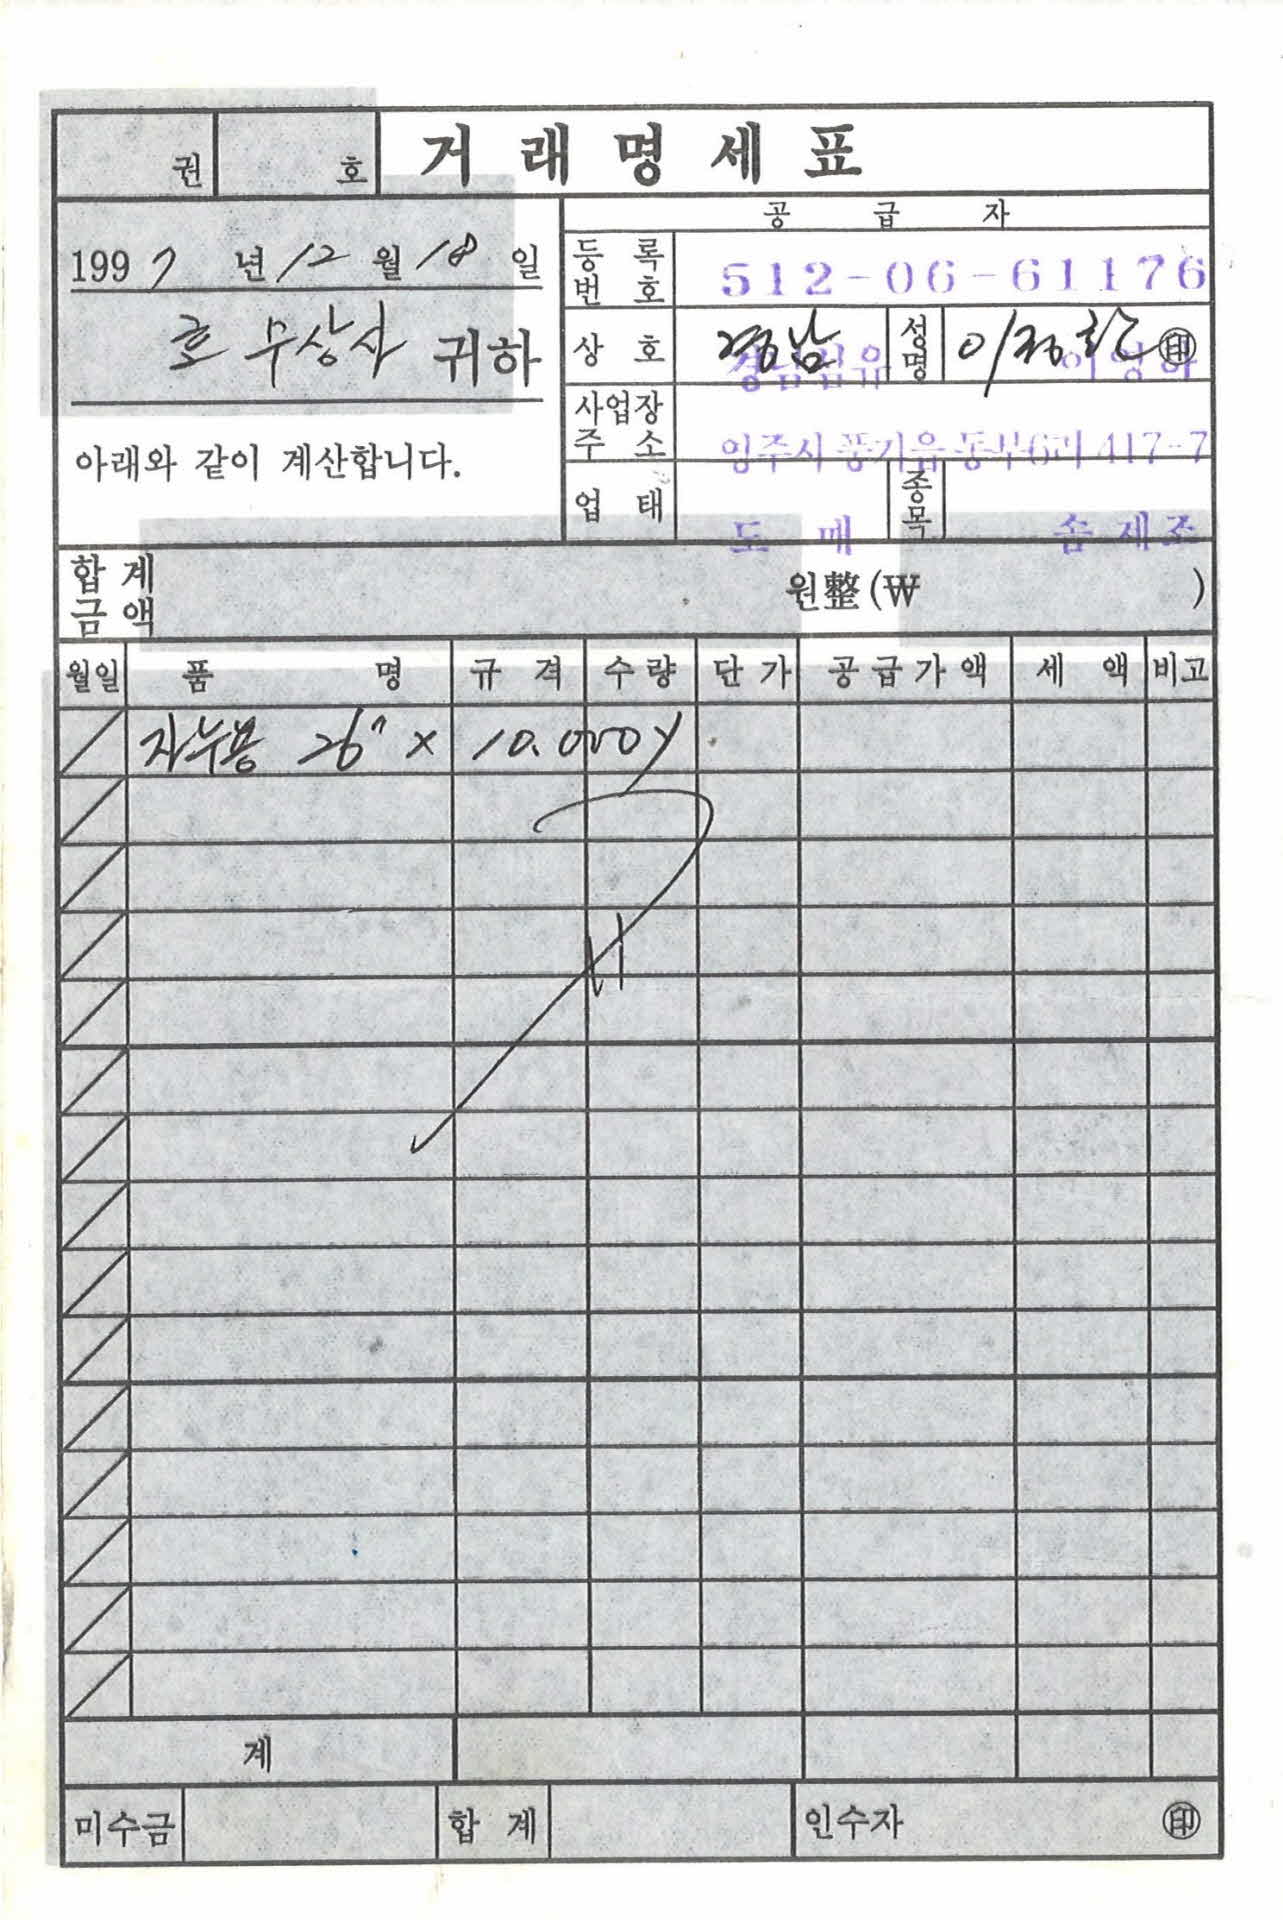 권 호 거래명세표
공급자
1997년 12월 18일
등록번호 512-06-61176
호무상사 귀하
상호 경남 성명 ㊞
경남섬유 이영하
아래와 같이 계산합니다.
사업장주소 영주시 풍기읍 동부6리 417-7
업태 도매 종목
합계금액 원整(₩ )
월일 품명 규격 수량 단가 공급가액 세액 비고
자누용 26" × 10.000y
계
미수금 합계 인수자 ㊞